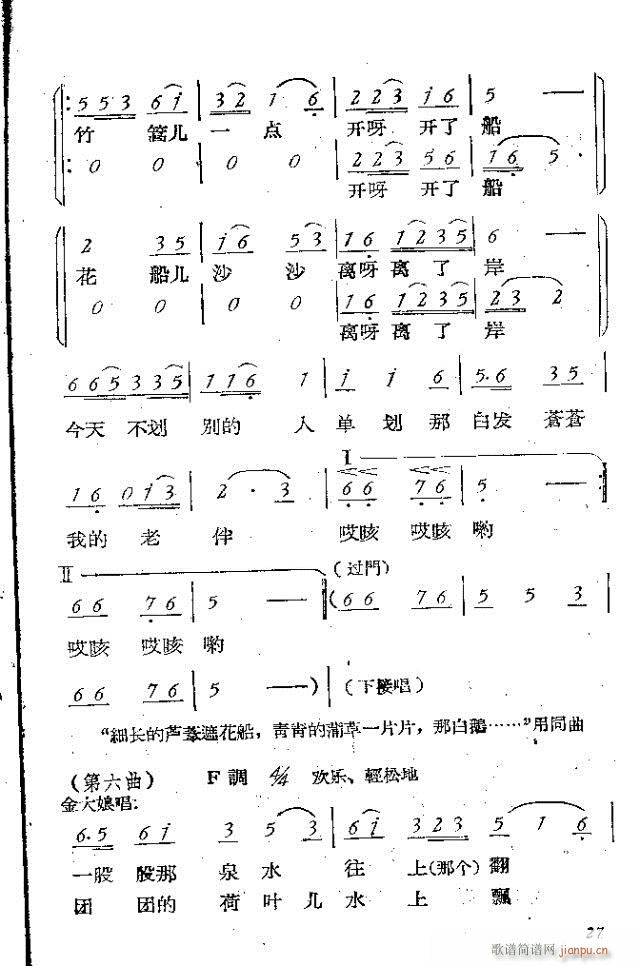 5 5 3 6 i | 3 2 1 6 | 2 2 3 i 6 | 5 —
竹 篙儿 一 点 开呀 开了 船
0 0 | 0 0 | 2 2 3 5 6 | 1 6 5
开呀 开了 船
2 3 5 | i 6 5 3 | 1 6 1 2 3 5 | 6 —
花 船儿 沙 沙 离呀 离 了 岸
0 0 | 0 0 | 1 6 1 2 3 5 | 2 3 2
离呀 离 了 岸
6 6 5 3 3 5 | 1 1 6 1 | i i 6 | 5·6 3 5
今天 不划 别的 人 单 划 那 白发 蒼苍
I
1 6 0 i 3 | 2 · 3 | 6 6 7 6 | 5 —
我的 老 伴 哎咳 哎咳 哟
II (过門)
6 6 7 6 | 5 — (6 6 7 6 | 5 5 3
哎咳 哎咳 哟
6 6 7 6 | 5 —) | (下接唱)
“細长的芦葦遮花船，青青的蒲草一片片，那白鵝……”用同曲
(第六曲) F調 4/4 欢乐、輕松地
金大娘唱:
6·5 6 i 3 5 3 | 6 i 3 2 3 5 1 6
一股 股那 泉 水 往 上(那个)翻
团 团的 荷 叶儿 水 上 飄
27
歌谱简谱网 jianpu.cn